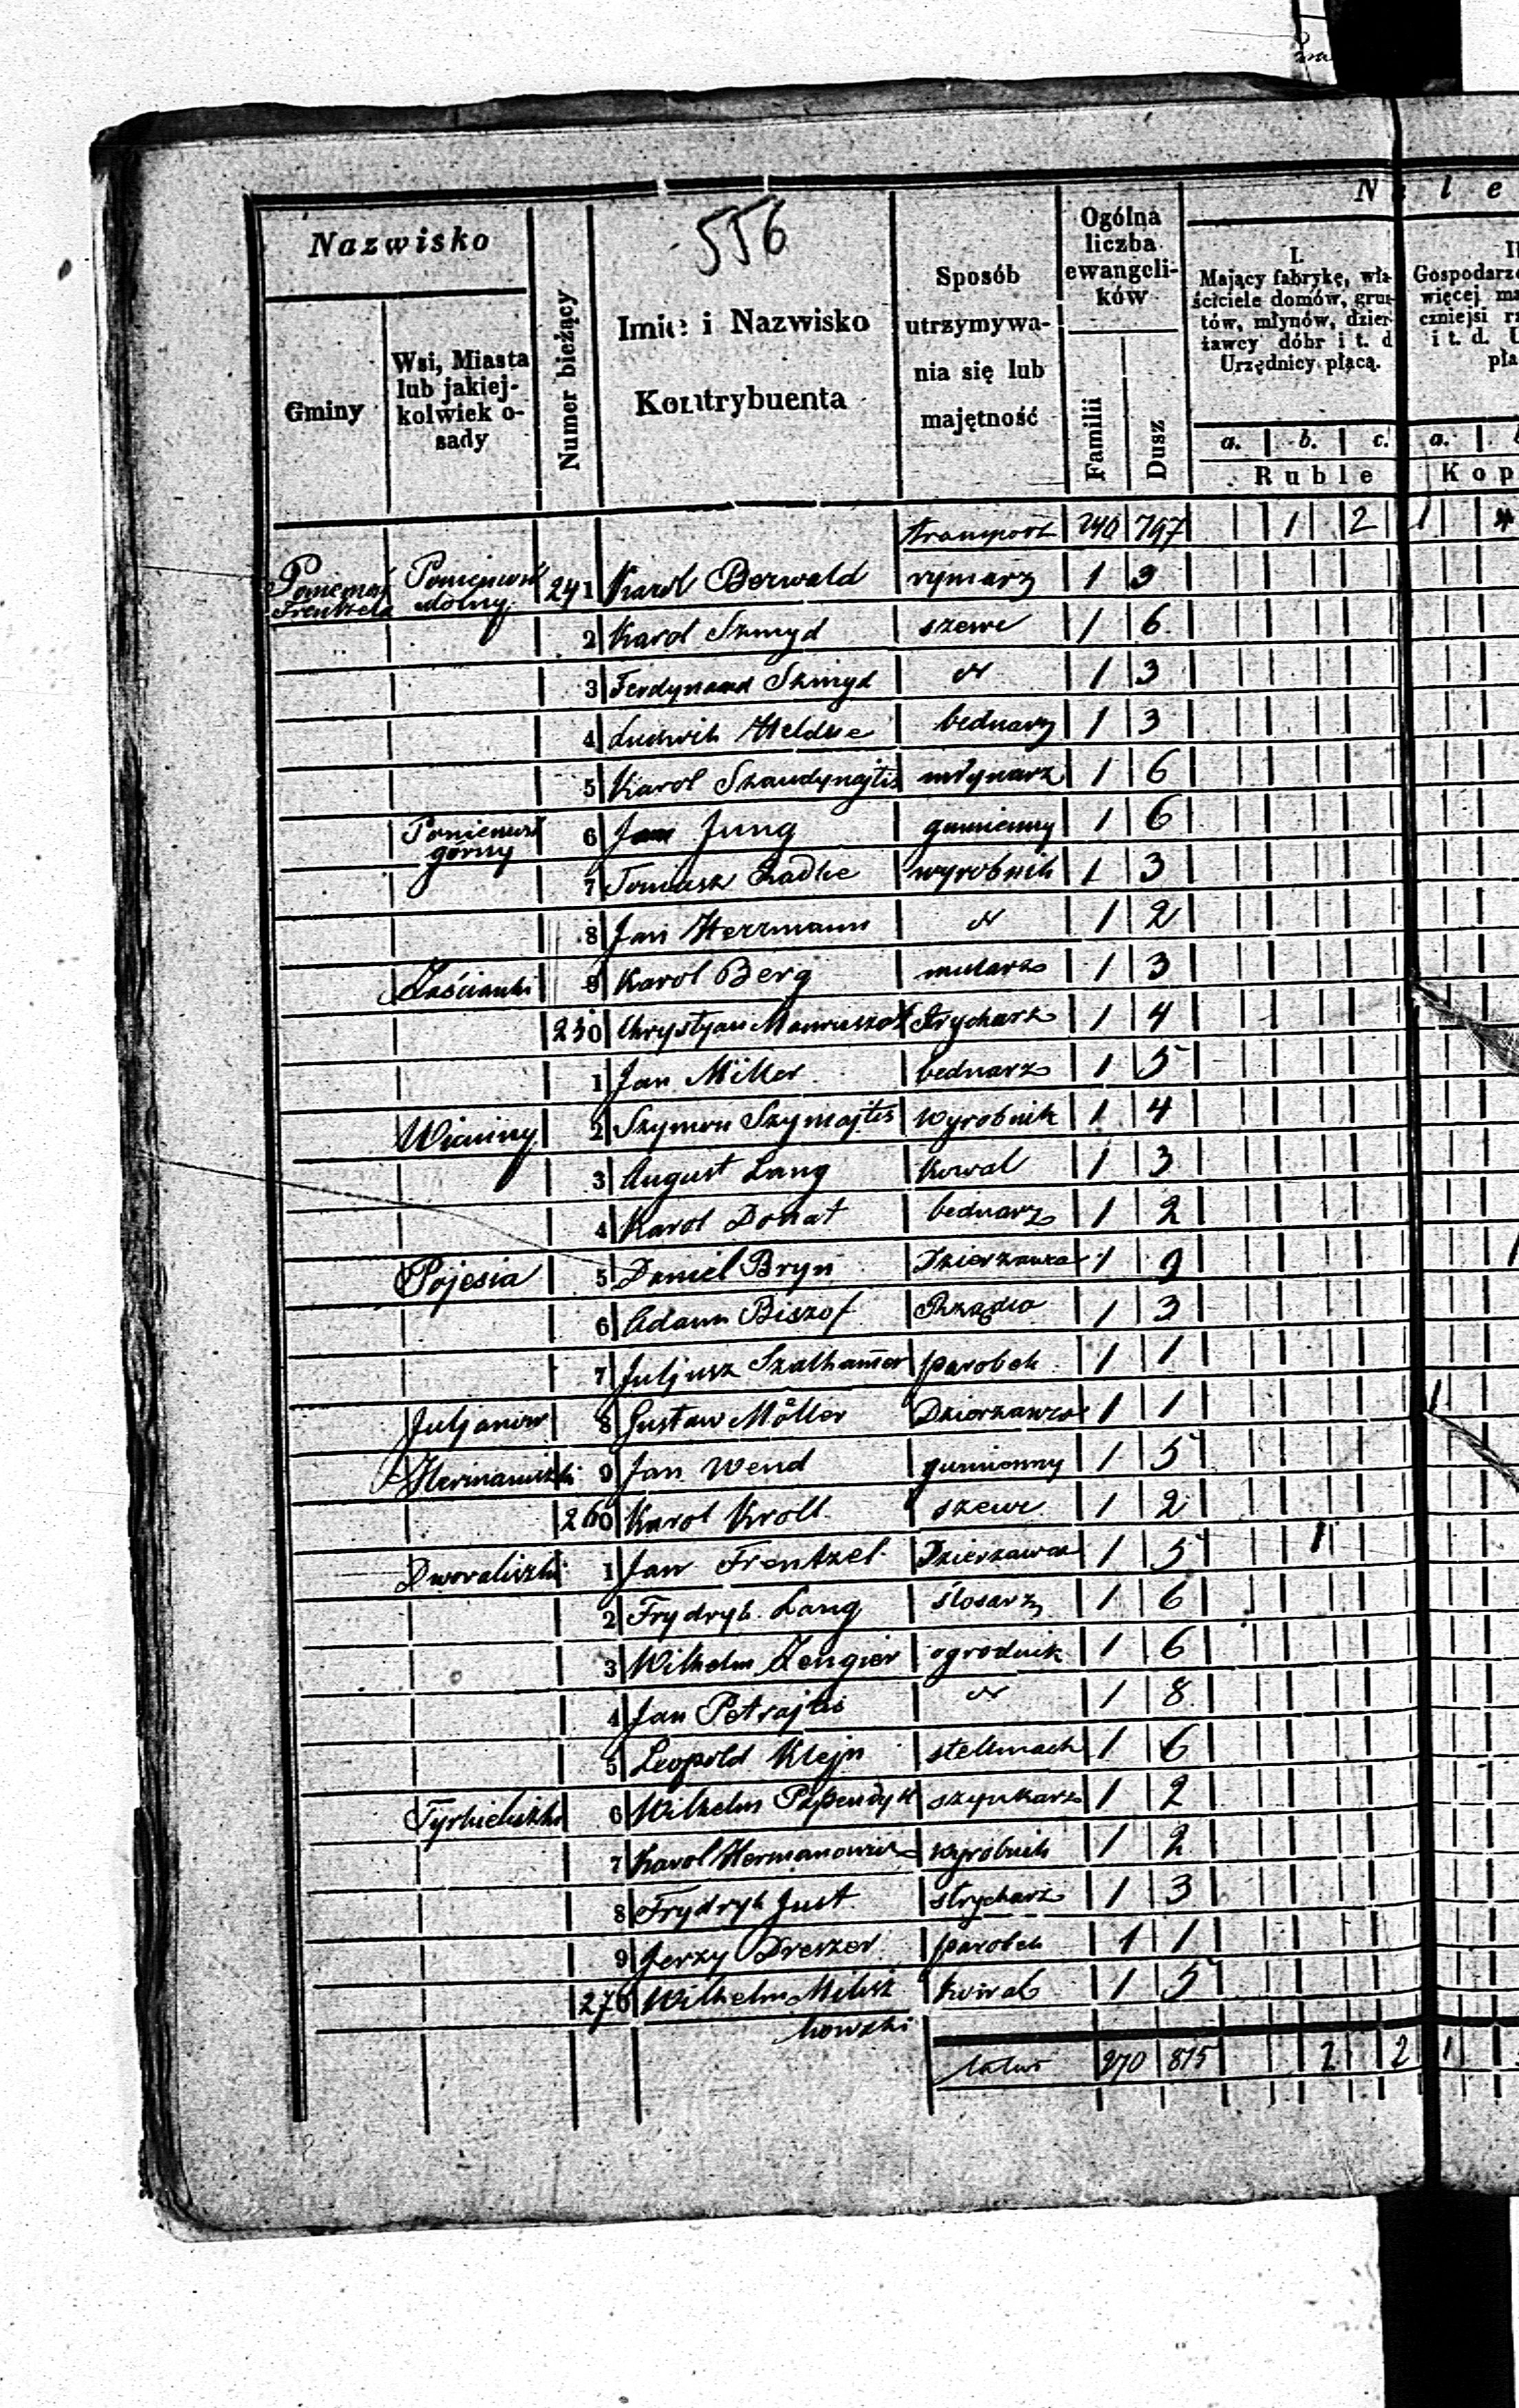 N a l e
Nazwisko
556
Ogólna
liczba
ewangeli-
ków
Gminy
Wsi, Miasta
lub jakiej-
kolwiek o-
sady
Numer bieżący
Imię i Nazwisko
Kontrybuenta
Sposób
utrzymywa-
nia się lub
majętność
Familii
Dusz
I.
Mający fabrykę, wła-
ściciele domów, grun-
tów, młynów, dzier-
żawcy dóbr i t. d
Urzędnicy płacą.
Gospodarze
więcej ma
czniejsi rz
i t. d. U
pła
a. b. c. a.
Ruble Kop
transport 240 797 1 2 1
Poniemoń Frentzela Poniemoń dolny 241 Karol Berwald rymarz 1 3
2 Karol Szmyd szewc 1 6
3 Ferdynand Szmyd 1 3
4 Ludwik Heldke bednarz 1 3
5 Karol Szaudynajtis młynarz 1 6
górny 6 Jan Jung gumienny 1 6
7 Tomasz Radke wyrobnik 1 3
8 Jan Herrmann 1 2
Zaścianki 9 Karol Berg mularz 1 3
250 Chrystyan Strycharz 1 4
1 Jan Miller bednarz 1 5
2 Szymon Szymajtis wyrobnik 1 4
3 August Lang Kowal 1 3
4 Karol Donat bednarz 1 2
Pojesia 5 Daniel Bryn Dzierżawca 1 9
6 Adam Biszof Rządca 1 3
7 Juljusz Szalhamer parobek 1 1
Juljanow 8 Gustaw Möller Dzierżawca 1 1 1
Hermaniszki 9 Jan Wend gumienny 1 5
260 Karol Kroll szewc 1 2
Dworaliszki 1 Jan Frentzel Dzierżawca 1 5 1
2 Frydryk Lang ślosarz 1 6
3 Wilhelm Zengier ogrodnik 1 6
4 Jan Petrajtis 1 8
5 Leopold Klejn stellmach 1 6
6 Wilhelm szynkarz 1 2
7 Karol Hermanowicz wyrobnik 1 2
8 Frydryk Just strycharz 1 3
9 Jerzy Dreszer parobek 1 1
270 Wilhelm Milisz kowal 1 5
kowski
latus 270 875 2 2 1